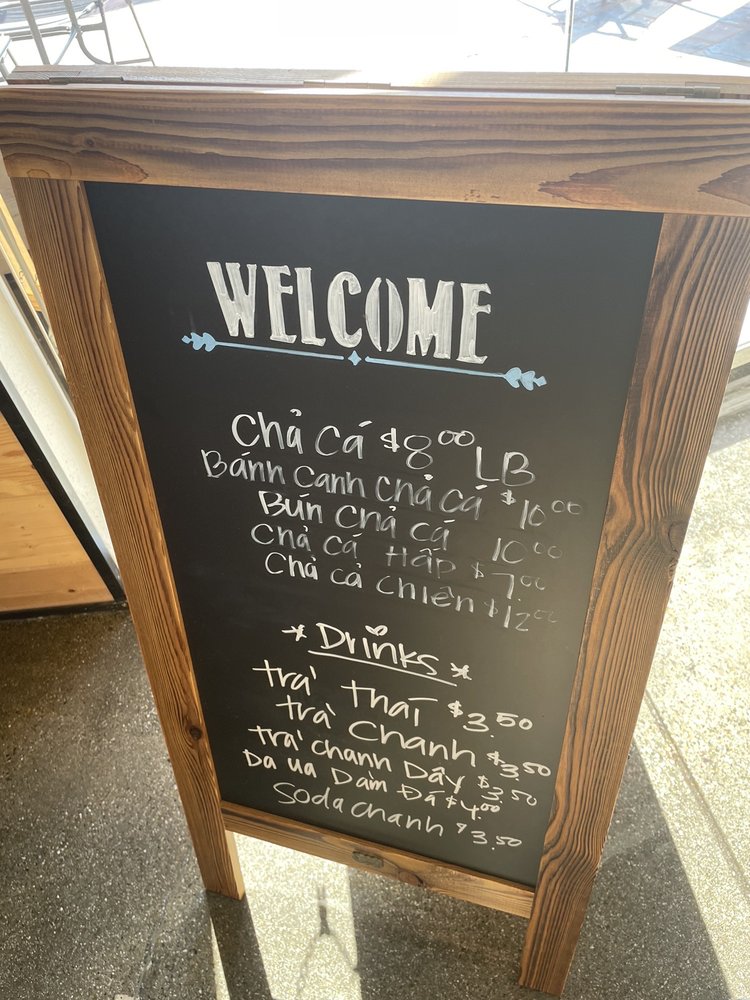 WELCOME
Chả Cá $8.00 LB
Bánh Canh Chả Cá $10.00
Bún Chả Cá 10.00
Chả Cá Hấp $7.00
Chả cả chiên $12.00
* Drinks *
trà thái $3.50
trà Chanh $3.50
trà chanh Dây $3.50
Da ua Dầm Đá $4.00
Soda chanh $3.50